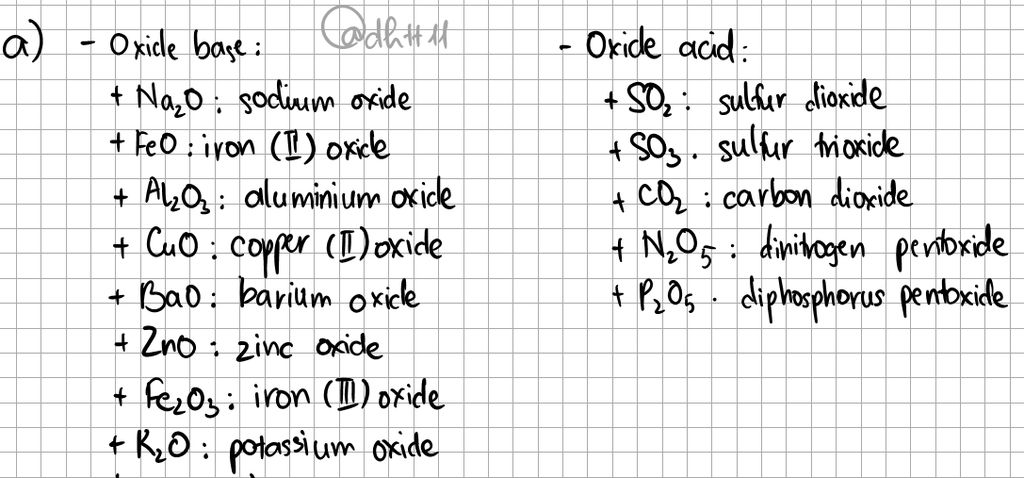 a) - Oxide base:
@dhtt11
+ Na₂O : sodium oxide
+ FeO : iron (II) oxide
+ Al₂O₃ : aluminium oxide
+ CuO : copper (II) oxide
+ BaO : barium oxide
+ ZnO : zinc oxide
+ Fe₂O₃ : iron (III) oxide
+ K₂O : potassium oxide
- Oxide acid:
+ SO₂ : sulfur dioxide
+ SO₃ . sulfur trioxide
+ CO₂ : carbon dioxide
+ N₂O₅ : dinitrogen pentoxide
+ P₂O₅ . diphosphorus pentoxide